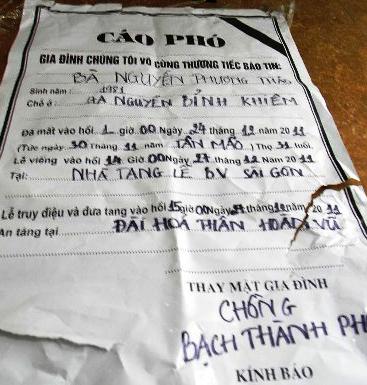 CÁO PHÓ
GIA ĐÌNH CHÚNG TÔI VÔ CÙNG THƯƠNG TIẾC BÁO TIN:
BÀ NGUYỄN PHƯƠNG THẢO
Sinh năm: 1981
Chỗ ở: 9A NGUYỄN BỈNH KHIÊM
Đã mất vào hồi 1 giờ 00 Ngày 24 tháng 12 năm 2011
(Tức ngày 30 Tháng 11 năm TÂN MÃO) Thọ 31 tuổi
Lễ viếng vào hồi 14 Giờ 00 Ngày 27 tháng 12 Năm 2011
Tại: NHÀ TANG LỄ BV SÀI GÒN
Lễ truy điệu và đưa tang vào hồi 15 giờ 00 Ngày 27 tháng 12 năm 2011
An táng tại ĐÀI HOÁ THÂN HOÀN VŨ
THAY MẶT GIA ĐÌNH
CHỒNG
BẠCH THÀNH
KÍNH BÁO